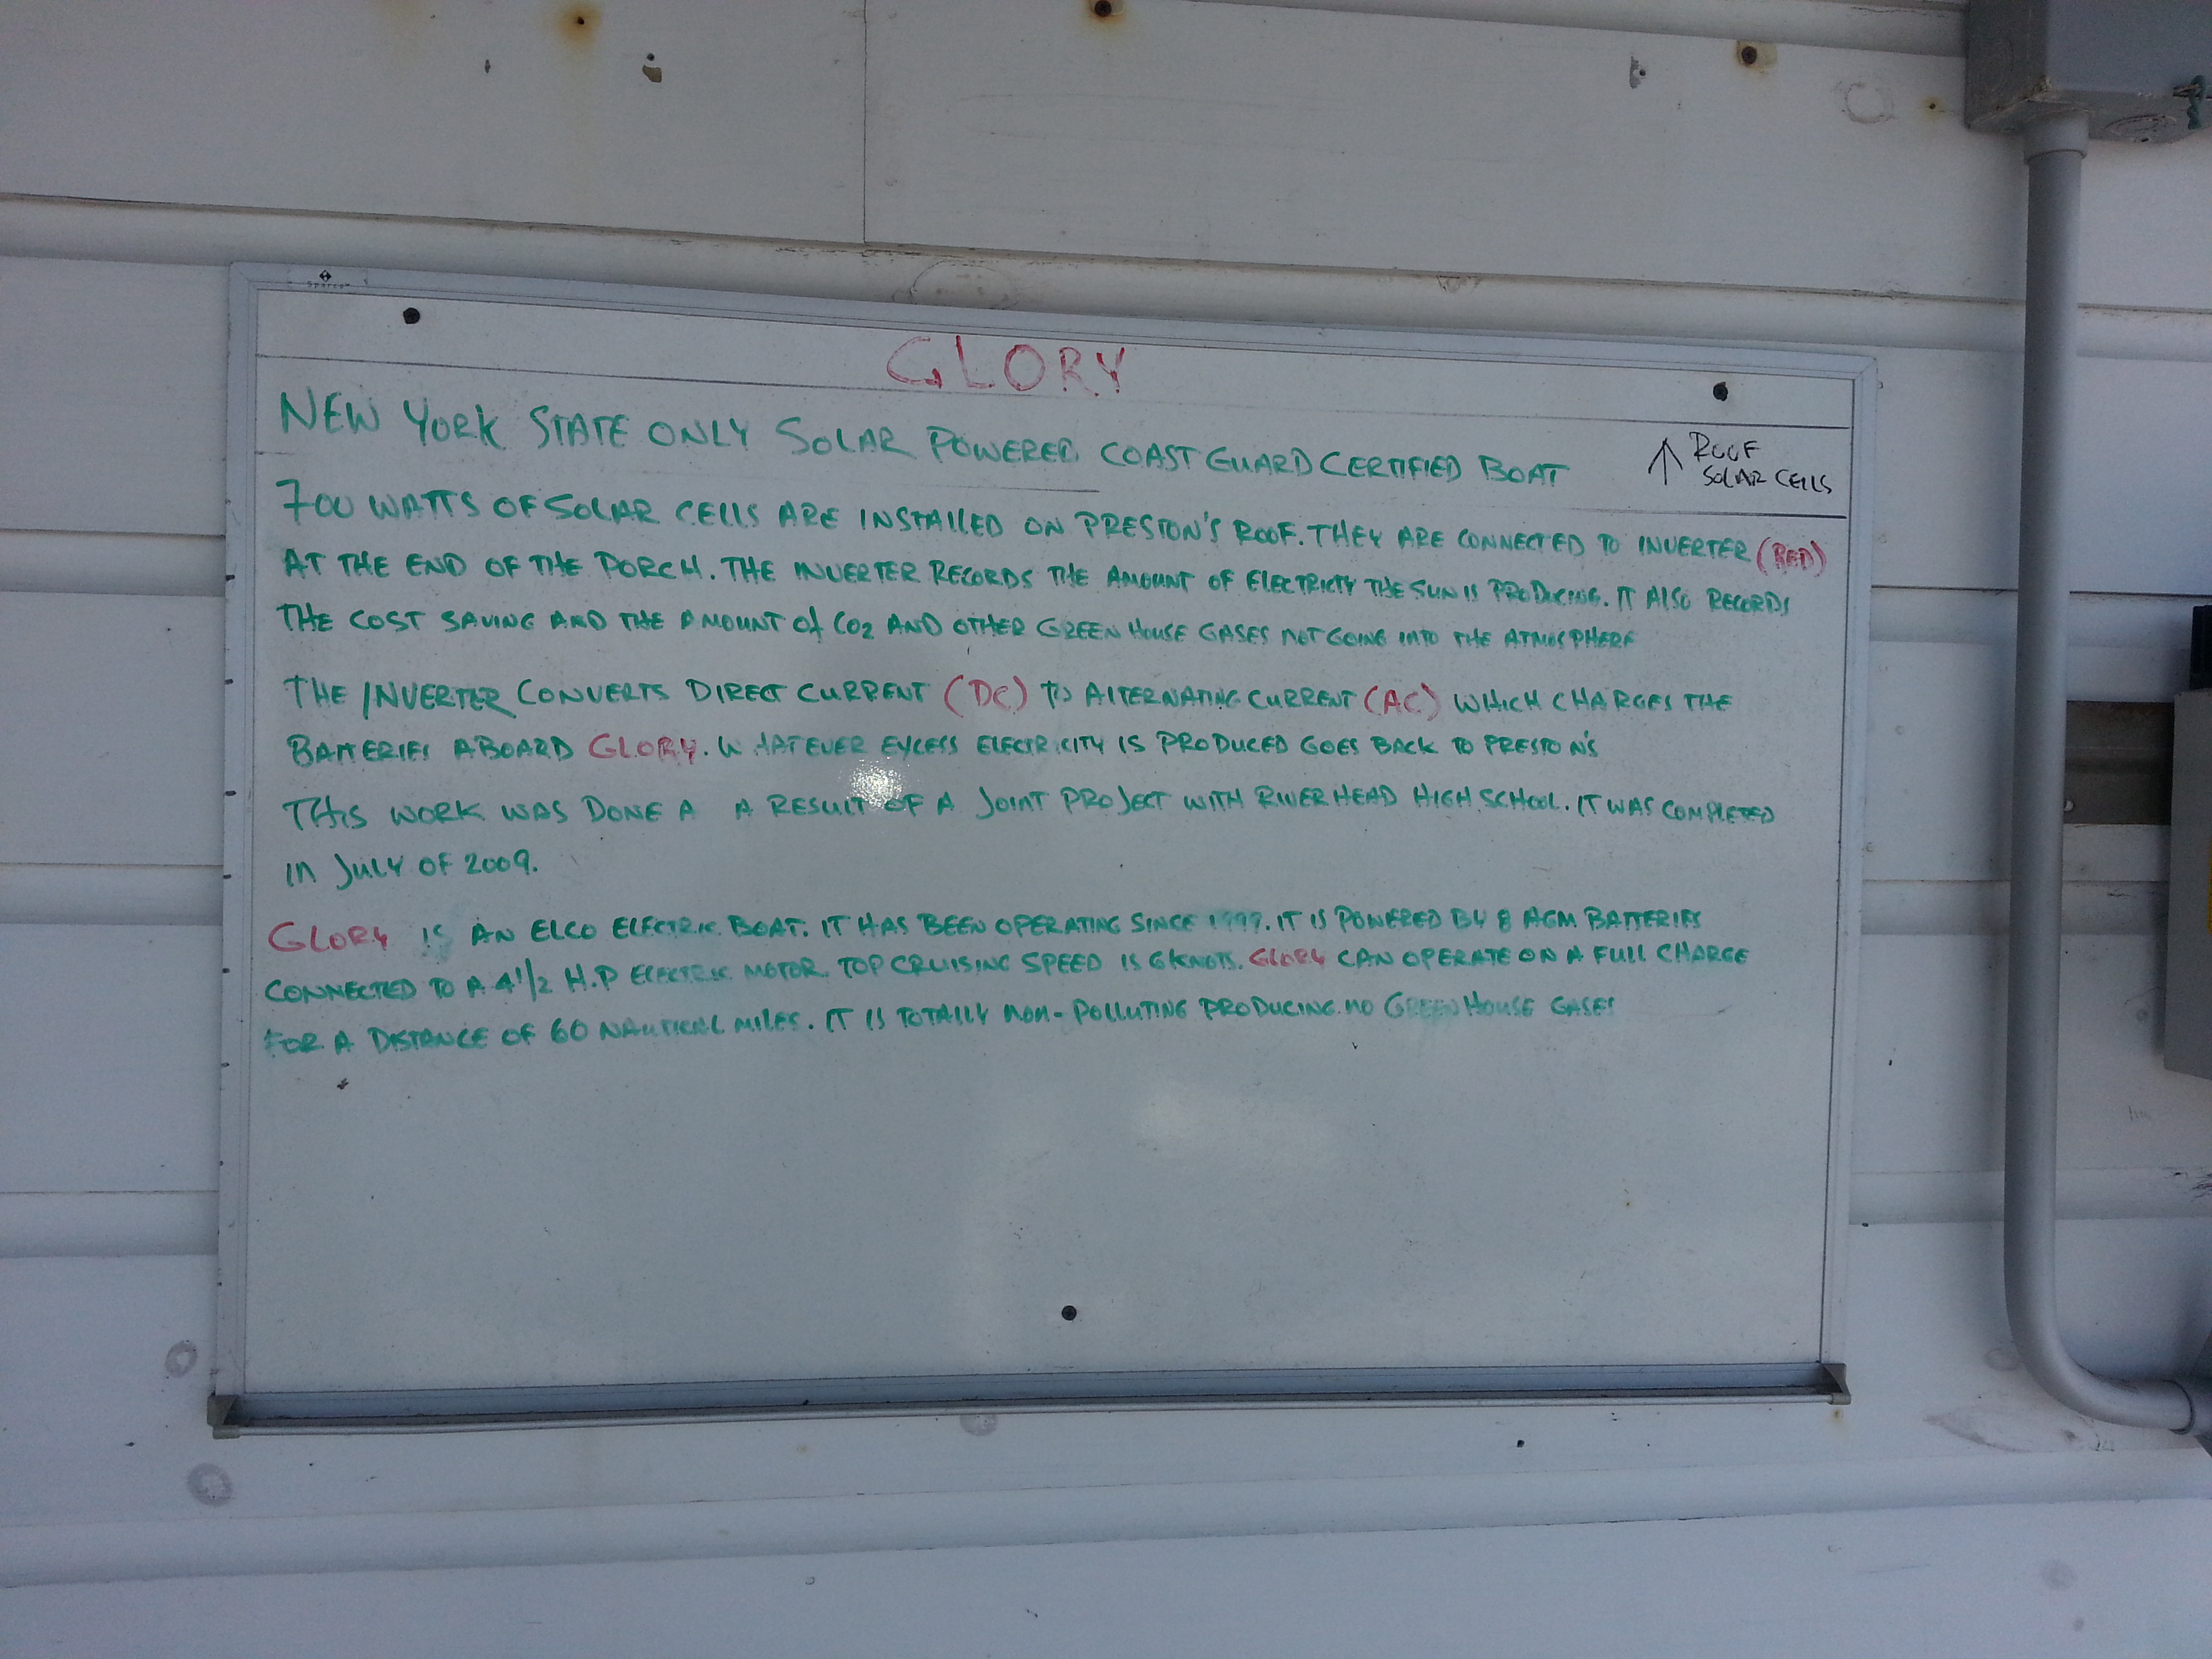 GLORY
NEW YORK STATE ONLY SOLAR POWERED COAST GUARD CERTIFIED BOAT
↑ ROOF
SOLAR CELLS
700 WATTS OF SOLAR CELLS ARE INSTALLED ON PRESTON'S ROOF. THEY ARE CONNECTED TO INVERTER (RED)
AT THE END OF THE PORCH. THE INVERTER RECORDS THE AMOUNT OF ELECTRICTY THE SUN IS PRODUCING. IT ALSO RECORDS
THE COST SAVING AND THE AMOUNT of CO2 AND OTHER GREEN HOUSE GASES NOT GOING INTO THE ATMOSPHERE
THE INVERTER CONVERTS DIRECT CURRENT (DC) TO ALTERNATING CURRENT (AC) WHICH CHARGES THE
BATTERIES ABOARD GLORY. WHATEVER EXCESS ELECTRICITY IS PRODUCED GOES BACK TO PRESTON'S
THIS WORK WAS DONE A A RESULT OF A JOINT PROJECT WITH RIVERHEAD HIGH SCHOOL. IT WAS COMPLETED
IN JULY OF 2009.
GLORY IS AN ELCO ELECTRIC BOAT. IT HAS BEEN OPERATING SINCE 1999. IT IS POWERED BY 8 AGM BATTERIES
CONNECTED TO A 4 1/2 H.P ELECTRIC MOTOR. TOP CRUISING SPEED IS 6 KNOTS. GLORY CAN OPERATE ON A FULL CHARGE
FOR A DISTANCE OF 60 NAUTICAL MILES. IT IS TOTALLY NON-POLLUTING PRODUCING NO GREEN HOUSE GASES